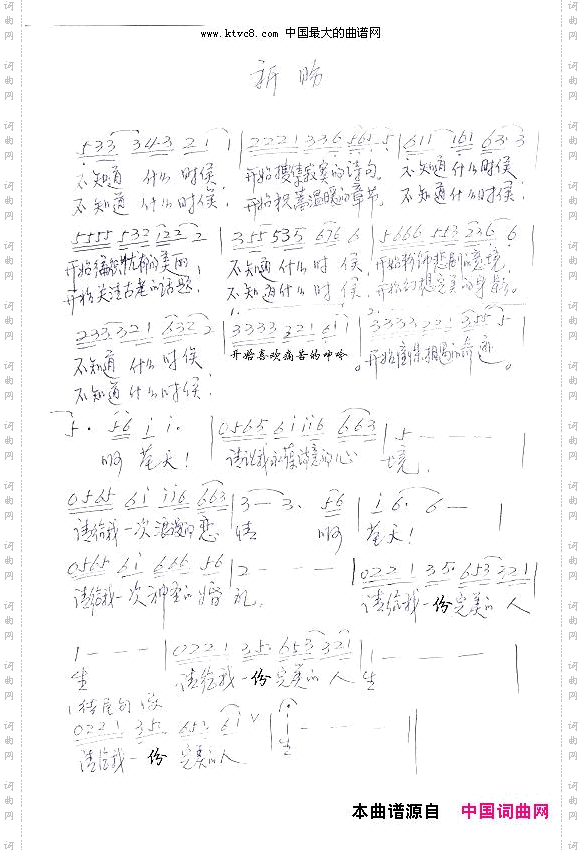 www.ktvc8.com 中国最大的曲谱网
新盼
533 343 21 1 | 2221 336 561·5 | 611 161 63·3
不知道 什么时候, 开始搜集寂寞的诗句, 不知道什么时候
不知道 什么时候, 开始积蓄温暖的章节, 不知道什么时候,
5555 532 122 2 | 355 535 676 6 | 5666 553 236 6
开始编织忧郁的美丽, 不知道什么时候,开始粉饰悲剧的意境,
开始关注古老的话题, 不知道什么时候,开始幻想完美的身影。
1. 2.
233 321 632 2 | 3333 321 611 | 3333 321 355 5
不知道 什么时候 开始喜欢痛苦的呻吟。开始憧憬相遇的奇迹。
不知道什么时候,
5· 56 1 1· | 0565 61116 663 | 5 - - -
啊 苍天! 请让我永葆诗意的心 境,
0565 61 116 663 | 3 - 3· 56 | 1 6· 6 -
请给我一次浪漫的恋 情 啊 苍天!
0565 61 666 56 | 2 - - - | 0221 35· 653 321 |
请给我一次神圣的婚 礼, 请给我一份完美的 人
1 - - - | 0221 35· 653 321 | 1 - - -
生 请给我一份完美的 人 生
(结尾句)
0221 35· 65· 61 ∨ | 1 - - - ‖
请给我一份 完美的人 生
本曲谱源自 中国词曲网
词曲网